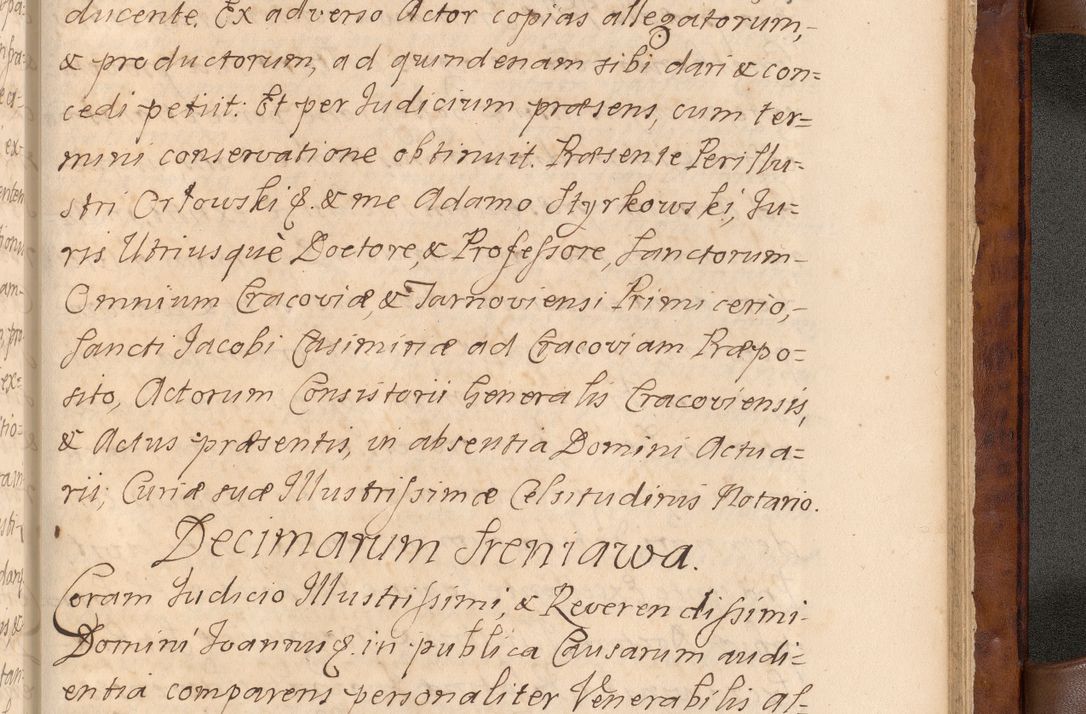 ducente. Ex adverso Actor copias allegatorum,
& productorum, ad quindenam sibi dari & con=
cedi petiit. Et per Judicium præsens, cum ter=
mini conservatione obtinuit. Præsente Perillu=
stri Orłowski &. & me Adamo Styrkowski, Ju=
ris Utriusquè Doctore, & Professore, Sanctorum
Omnium Cracoviæ, & Tarnoviensi Primicerio,
Sancti Jacobi Casimiriæ ad Cracoviam Præpo=
sito, Actorum Consistorii Generalis Cracoviensis,
& Actus præsentis, in absentia Domini Actua=
rii, Curiæ suæ Illustrissimæ Celsitudinis Notario.
Decimarum Sreniawa.
Coram Judicio Illustrissimi, & Reverendissimi
Domini Joannis &. in publica Causarum audi=
entia comparens personaliter Venerabilis Al=